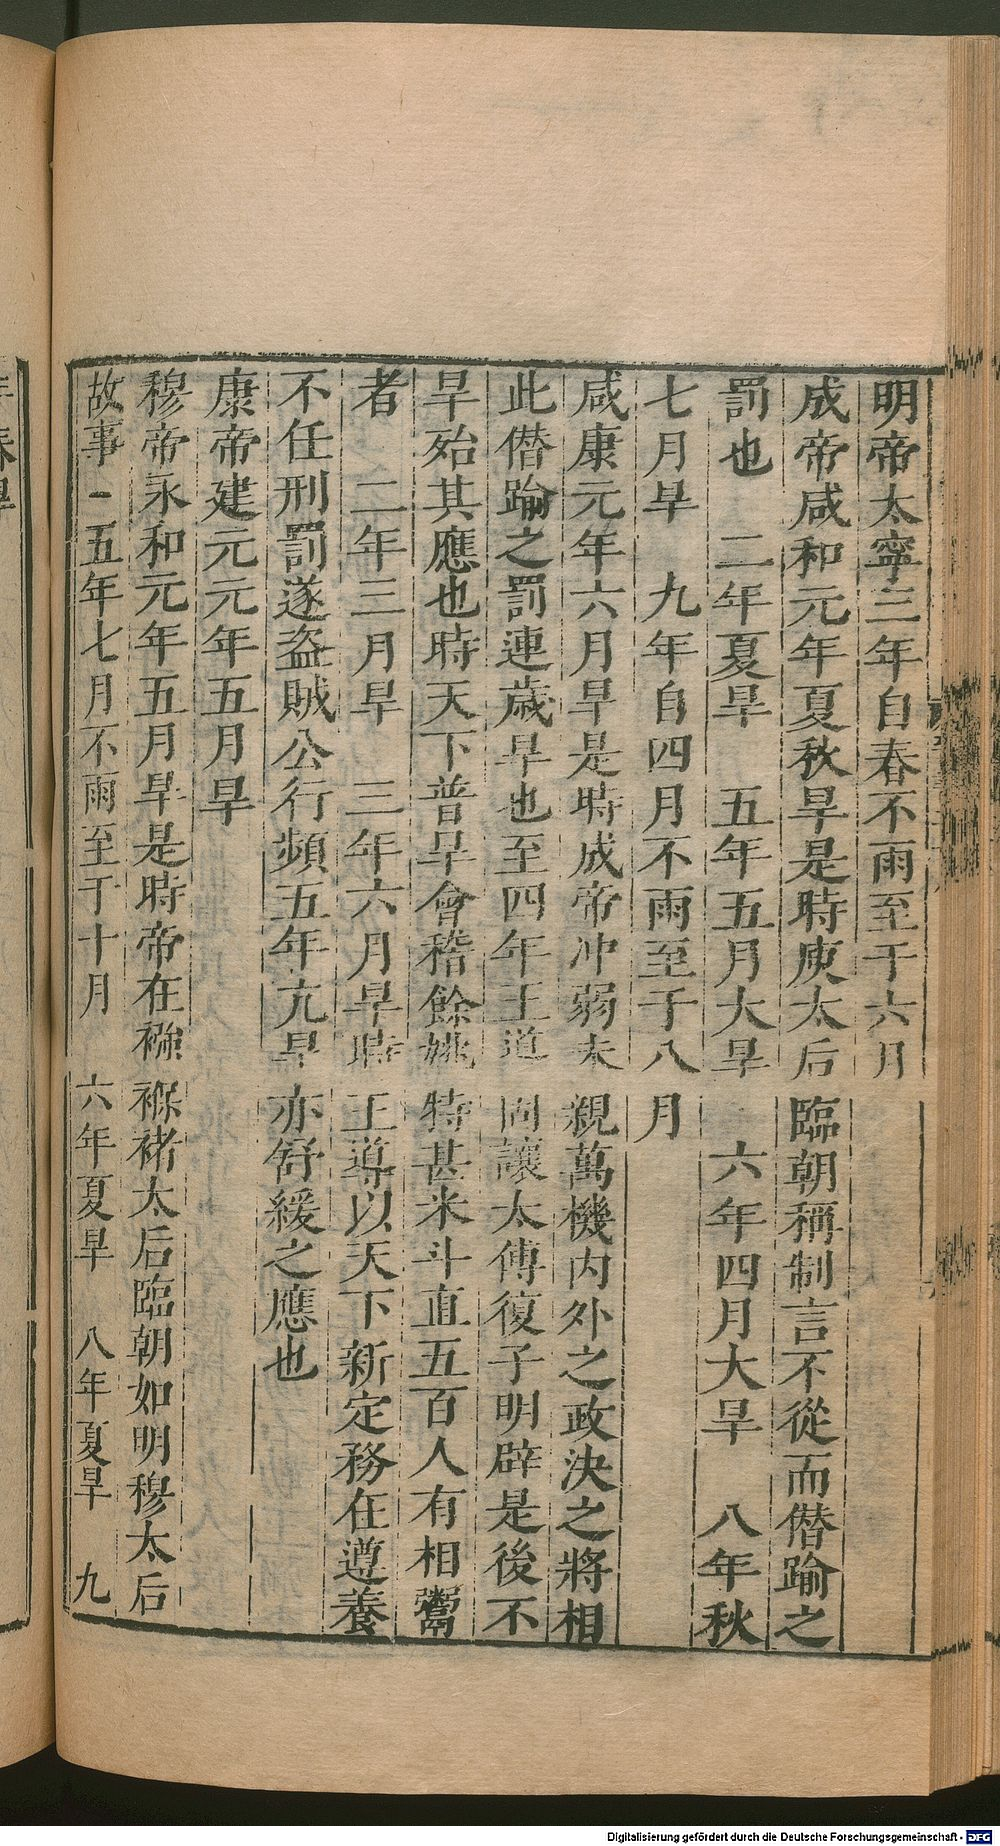 明帝太寧三年自春不雨至于六月
成帝咸和元年夏秋旱是時庾太后臨朝稱制言不從而僣踰之
罰也　二年夏旱　五年五月大旱　六年四月大旱　八年秋
七月旱　九年自四月不雨至于八月
咸康元年六月旱是時成帝冲弱未親萬機内外之政決之將相
此僣踰之罰連歲旱也至四年王道固讓太傅復子明辟是後不
旱殆其應也時天下普旱會稽餘姚特甚米斗直五百人有相鬻
者　二年三月旱　三年六月旱時王導以天下新定務在遵養
不任刑罰遂盗賊公行頻五年亢旱亦舒緩之應也
康帝建元元年五月旱
穆帝永和元年五月旱是時帝在襁褓褚太后臨朝如明穆太后
故事　五年七月不雨至于十月　六年夏旱　八年夏旱　九
Digitalisierung gefördert durch die Deutsche Forschungsgemeinschaft - DFG